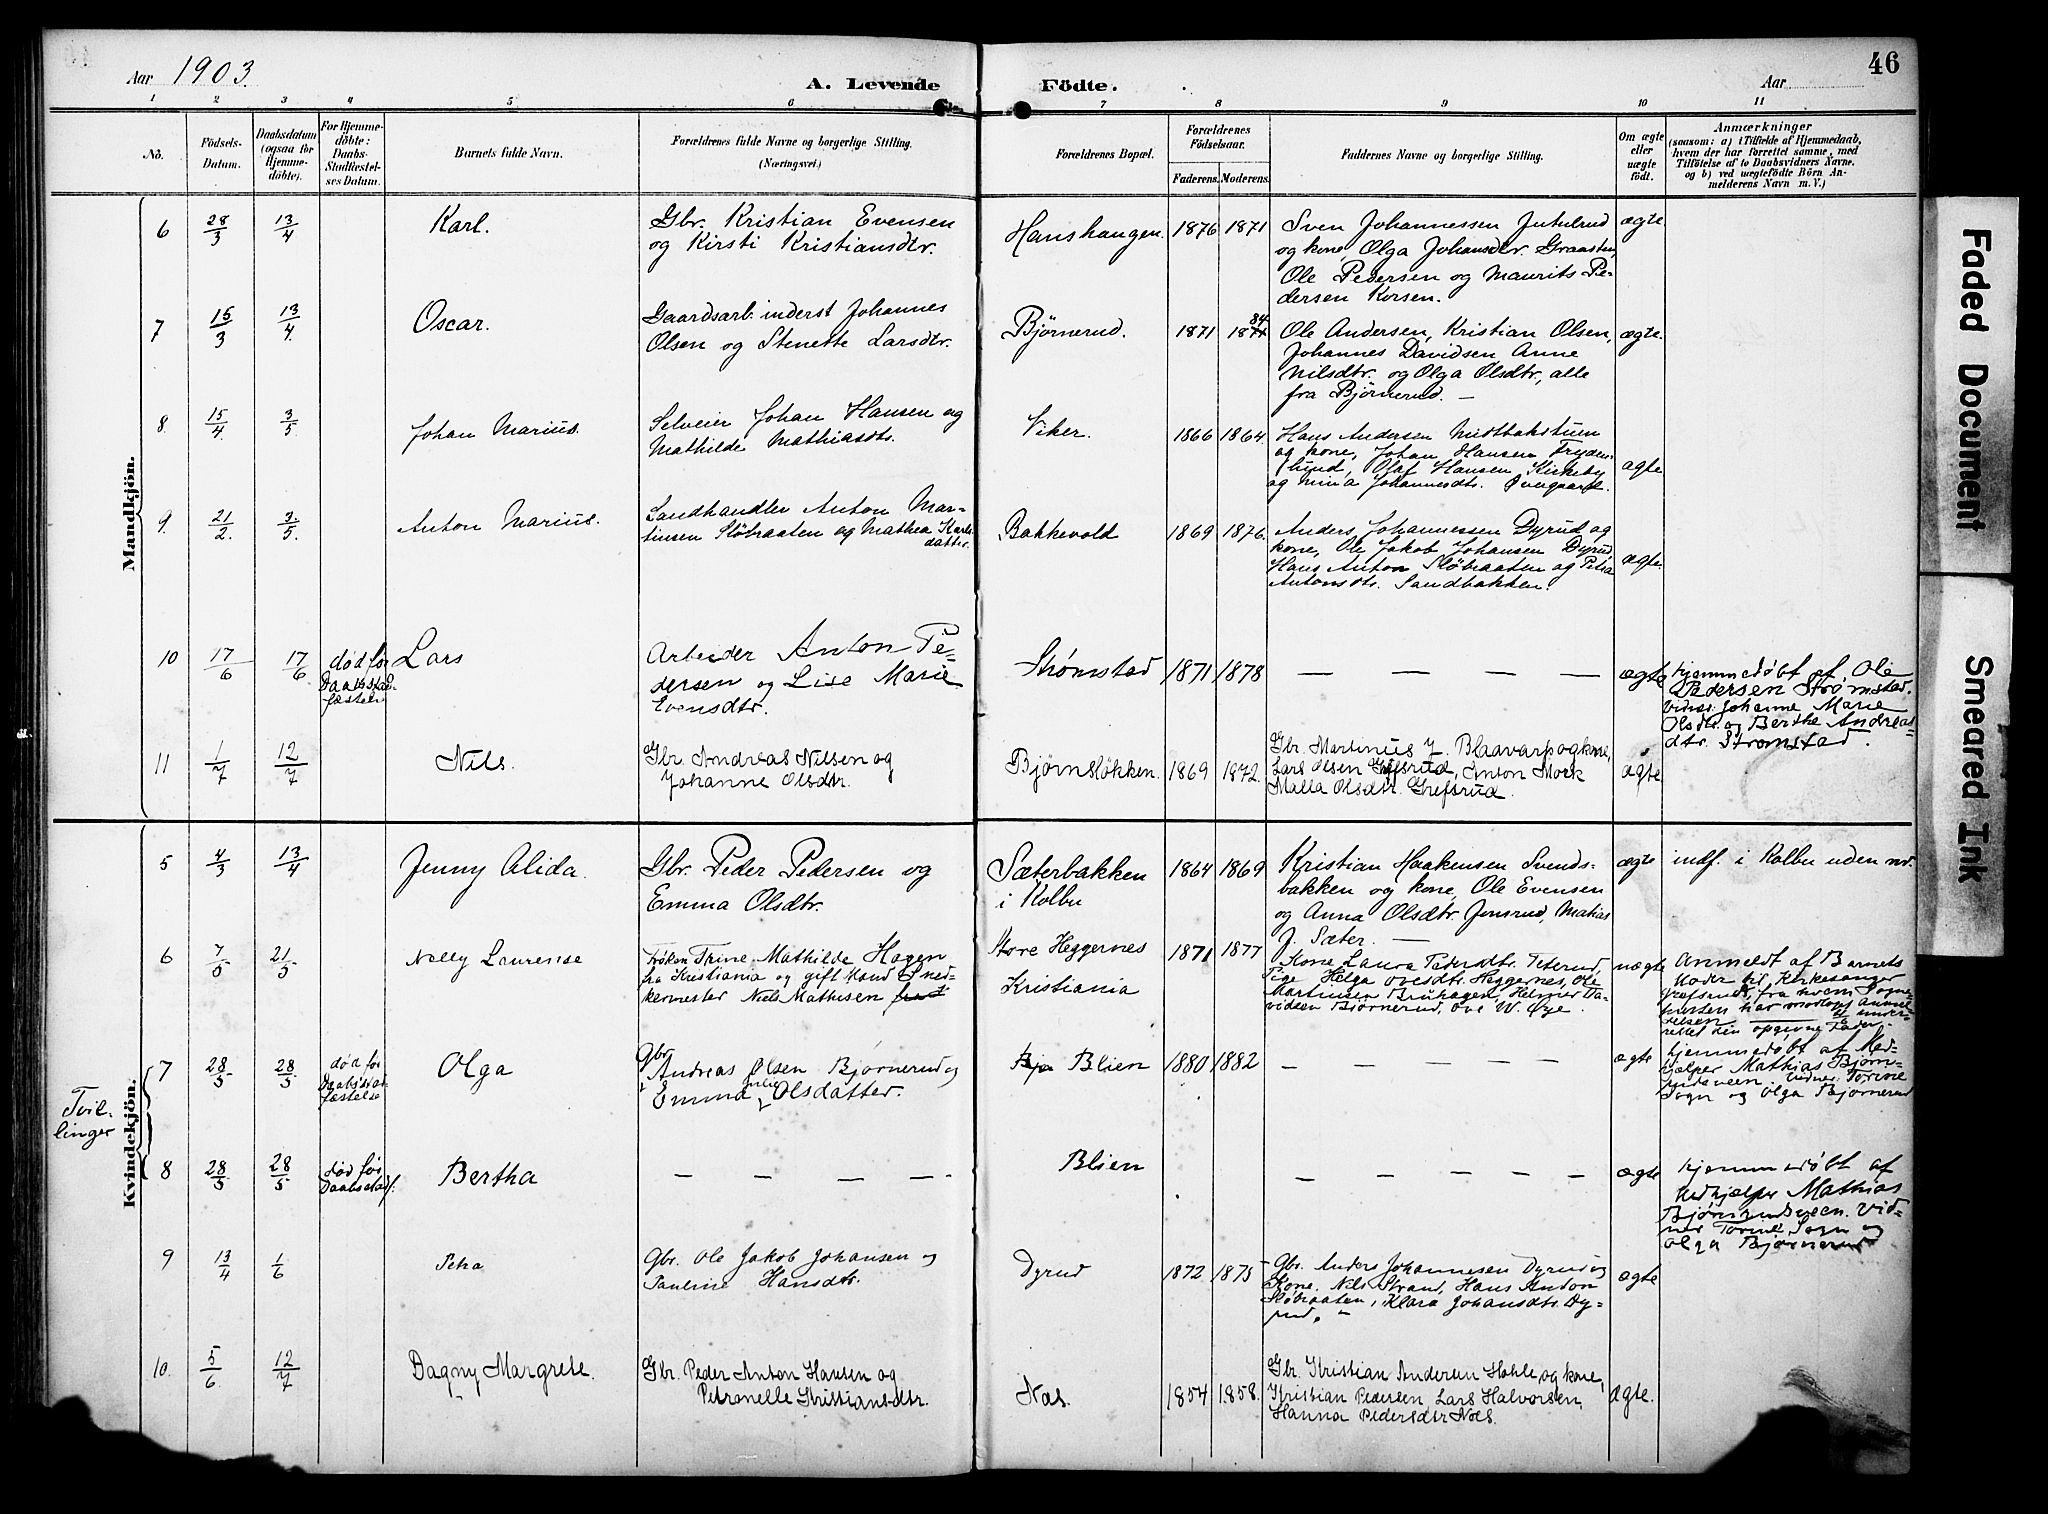 Aar 1903.
A. Levende Födte.
Aar
46
1 2 3 4 5 6 7 8 9 10 11
No.
Födsels-
Datum.
Daabsdatum
(ogsaa for
Hjemme-
döbte).
For Hjemme-
döbte:
Daabs-
Stadfestel-
ses Datum.
Barnets fulde Navn.
Forældrenes fulde Navne og borgerlige Stilling.
(Næringsvei.)
Forældrenes Bopæl.
Forældrenes
Födselsaar.
Faderens. Moderens.
Faddernes Navne og borgerlige Stilling.
Om ægte
eller
uægte
födt.
Anmærkninger
(saasom: a) i Tilfælde af Hjemmedaab,
hvem der har forrettet samme, med
Tilföielse af to Daabsvidners Navne.
og b) ved uægtefödte Börn An-
melderens Navn m. V.)
Mandkjön.
6 28/3 13/4 Karl.
Gbr. Kristian Evensen
og Kirsti Kristiansdtr.
Hanshaugen. 1876 1871
Sven Johannessen Jutulrud
og kone, Olga Johansdtr. Graasten,
Ole Pedersen og Maurits Pe-
dersen Korsen.
ægte.
7 15/3 13/4 Oscar.
Gaardsarb. inderst Johannes
Olsen og Stenette Larsdtr.
Bjørnerud. 1871 84
Ole Andersen, Kristian Olsen,
Johannes Davidsen, Anne
Nilsdtr. og Olga Olsdtr, alle
fra Bjørnerud. —
ægte.
8. 15/4. 3/5 Johan Marius.
Selveier Johan Hansen og
Mathilde Mathiasdtr.
Viker. 1866 1864.
Hans Andersen Midtbakstuen
og kone, Johan Hansen Fryden-
lund, Olaf Hansen Kirkeby
og Mina Johannesdtr.
ægte
9. 21/2. 3/5. Anton Marius.
Landhandler Anton Mar-
tinsen Slöbraaten og Mathea Karls-
datter.
Bakkevold 1869 1876.
Anders Johannessen Dyrud og
kone, Ole Jakob Johansen Dyrud,
Hans Anton Slöbraaten og Petra
Antonsdtr. Sandbakken.
ægte.
10 17/6 17/6 død før
Daabsstad-
fæstelse
Lars
Arbeider Anton Pe-
dersen og Lise Marie
Evensdtr.
Strømstad 1871 1878 — — — —
ægte
hjemmedøbt af Ole
Pedersen Strømstad.
Vidner: Johanne Marie
Olsdtr. og Berthe Andreas-
dtr. Strømstad.
11 1/7 12/7 Nils.
Gbr. Andreas Nilsen og
Johanne Olsdtr.
Bjørnsløkken. 1869 1872.
Gbr. Martinus J. Blaavarp og kone,
Lars Olsen Grefsrud, Anton Mork
Malla Olsdtr. Grefsrud.
ægte
Kvindekjön.
5 4/3 13/4 Jenny Alida.
Gbr. Peder Pedersen og
Emma Olsdtr.
Sæterbakken
i Kolbu
1864 1869
Kristian Haakensen Svends-
bakken og kone, Ole Evensen
og Anna Olsdtr. Jonsrud, Mathias
J. Sæter. —
ægte
indf. i Kolbu uden nr.
6 7/5 21/5 Nelly Laurense
Frøken Trine Mathilde Hagen
fra Kristiania og gift Mand Sned-
kermester Niels Mathisen
Store Heggernes
Kristiania
1871 1877
Kone Laura Pedersdtr. Peterud,
Pige Helga Ovesdtr. Heggernes, Ole
Martinsen Bruhagen, Helmer Da-
vidsen Bjørnerud, Ove W. Øye.
uægte
Anmeldt af Barnets
Moder til Kirkesanger
Grefsrud, fra hvem Sogne-
presten har modtaget Anmel-
delsen og under-
rettet den opgivne Fader.
Tvil-
linger
7 28/5 28/5 død før
Daabsstad-
fæstelse
Olga
Gbr
Andreas Olsen Bjørnerud og
Emma Olsdatter.
Blien 1880 1882 — — — — —
ægte
hjemmedøbt af Med-
hjælper Mathias Bjørn-
erudsveen. Vidner: Torine
Sogn og Olga Bjørnerud
8 28/5 28/5 død før
Daabsstadf:
Bertha
— — — —
Blien
— — — — —
ægte
hjemmedøbt af
Medhjælper Mathias
Bjørnerudsveen. Vid-
ner Torine Sogn og
Olga Bjørnerud
9 13/4 1/6 Petra
Gbr. Ole Jakob Johansen og
Pauline Hansdtr.
Dyrud 1872 1875
Gbr. Anders Johannesen Dyrud og
Kone. Nils Strand, Hans Anton
Slöbraaten, Klara Johansdtr. Dy-
rud. —
ægte
10. 5/6 12/7 Dagny Margrete.
Gbr. Peder Anton Hansen og
Petronelle Kristiansdtr.
Næs. 1854 1858.
Gbr. Kristian Andersen Hohle og kone,
Kristian Pedersen, Lars Halvorsen,
Hanna Pedersdtr Næs.
ægte.
Faded Document
Smeared Ink